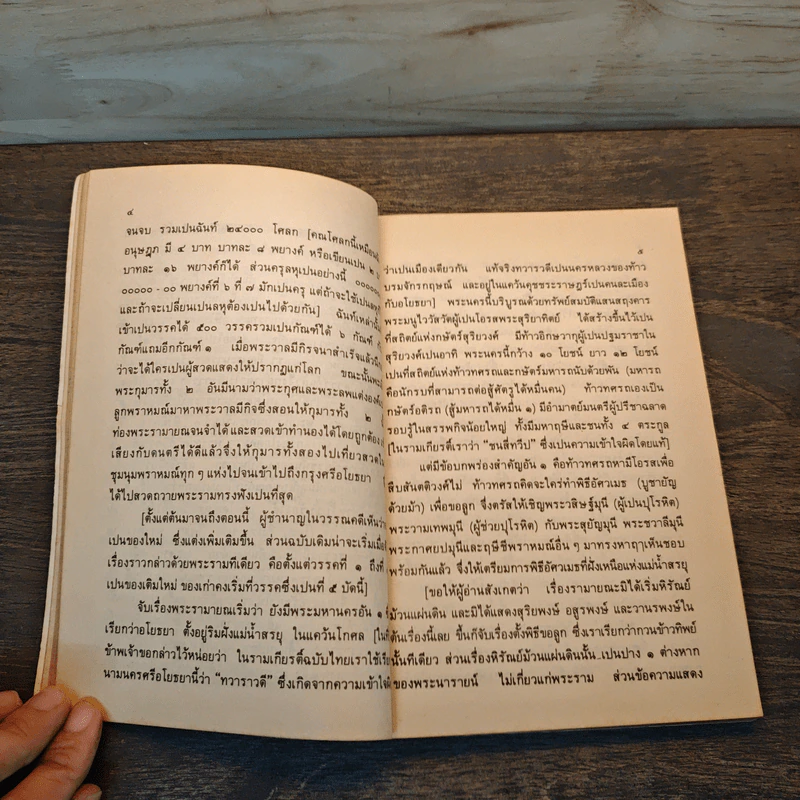 ๔
จนจบ รวมเปนฉันท์ ๒๔๐๐๐ โศลก [คณโศลกนี้เหมือน
อนุษฎุภ มี ๔ บาท บาทละ ๘ พยางค์ หรือเขียนเปน ๒
บาทละ ๑๖ พยางค์ก็ได้ ส่วนครุลหุเปนอย่างนี้ ๐๐๐๐๐๐
๐๐๐๐๐ - ๐๐ พยางค์ที่ ๖ ที่ ๗ มักเปนครุ แต่ถ้าจะใช้เปนลหุ
และถ้าจะเปลี่ยนเปนลหุต้องเปนไปด้วยกัน] ฉันท์เหล่านั้น
เข้าเปนวรรคได้ ๕๐๐ วรรครวมเปนกัณฑ์ได้ ๖ กัณฑ์
กัณฑ์แถมอีกกัณฑ์ ๑ เมื่อพระวาลมีกิรจนาสำเร็จแล้ว
ว่าจะได้ใครเปนผู้สวดแสดงให้ปรากฏแก่โลก ขณะนั้น
พระกุมารทั้ง ๒ อันมีนามว่าพระกุศและพระลพแต่งองค์
ลูกพราหมณ์มาหาพระวาลมีกิจึ่งสอนให้กุมารทั้ง ๒
ท่องพระรามายณจนจำได้ และสวดเข้าทำนองได้โดยถูกต้อง
เสียงกับดนตรีได้ดีแล้วจึ่งให้กุมารทั้งสองไปเที่ยวสวด
ชุมนุมพราหมณ์ทุก ๆ แห่งไปจนเข้าไปถึงกรุงศรีอโยธยา
ได้ไปสวดถวายพระรามทรงฟังเปนที่สุด
[ตั้งแต่ต้นมาจนถึงตอนนี้ ผู้ชำนาญในวรรณคดีเห็นว่า
เปนของใหม่ ซึ่งแต่งเพิ่มเติมขึ้น ส่วนฉบับเดิมน่าจะเริ่มเมื่อ
เรื่องราวกล่าวด้วยพระรามทีเดียว คือตั้งแต่วรรคที่ ๑ ถึงที่
เปนของเติมใหม่ ของเก่าคงเริ่มที่วรรคซึ่งเปนที่ ๕ บัดนี้]
จับเรื่องพระรามายณเริ่มว่า ยังมีพระมหานครอัน ๑
เรียกว่าอโยธยา ตั้งอยู่ริมฝั่งแม่น้ำสรยุ ในแคว้นโกศล [ใน
ข้าพเจ้าขอกล่าวไว้หน่อยว่า ในรามเกียรติ์ฉบับไทยเราใช้เรีย
นามนครศรีอโยธยานี้ว่า “ทวาราวดี” ซึ่งเกิดจากความเข้าใจ
๕
ว่าเปนเมืองเดียวกัน แท้จริงทวารวดีเปนนครหลวงของท้าว
บรมจักรกฤษณ์ และอยู่ในแคว้นคุชชระราษฎร์เปนคนละเมือง
กับอโยธยา] พระนครนี้บริบูรณด้วยทรัพย์สมบัติแสนสฤงคาร
พระมนูไววัสวัตผู้เปนโอรสพระสุริยาทิตย์ ได้สร้างขึ้นไว้เปน
ที่สถิตย์แห่งกษัตร์สุริยวงศ์ มีท้าวอิกษวากุผู้เปนปฐมราชาใน
สุริยวงศ์เปนอาทิ พระนครนี้กว้าง ๑๐ โยชน์ ยาว ๑๒ โยชน์
เปนที่สถิตย์แห่งท้าวทศรถและกษัตร์มหารถนับด้วยพัน (มหารถ
คือนักรบที่สามารถต่อสู้ศัตรูได้หมื่นคน) ท้าวทศรถเองเปน
กษัตร์อติรถ (สู้มหารถได้หมื่น ๑) มีอำมาตย์มนตรีผู้ปรีชาฉลาด
รอบรู้ในสรรพกิจน้อยใหญ่ ทั้งมีมหาฤษีและชนทั้ง ๔ ตระกูล
[ในรามเกียรติ์เราว่า “ชนสี่ทวีป” ซึ่งเปนความเข้าใจผิดโดยแท้]
แต่มีข้อบกพร่องสำคัญอัน ๑ คือท้าวทศรถหามีโอรสเพื่อ
สืบสันตติวงศ์ไม่ ท้าวทศรถคิดจะใคร่ทำพิธีอัศวเมธ (บูชายัญ
ด้วยม้า) เพื่อขอลูก จึ่งตรัสให้เชิญพระวสิษฐ์มุนี (ผู้เปนปุโรหิต)
พระวามเทพมุนี (ผู้ช่วยปุโรหิต) กับพระสุยัญมุนี พระชวาลีมุนี
พระกาศยปมุนีและฤษีชีพราหมณ์อื่น ๆ มาทรงหาฤๅเห็นชอบ
พร้อมกันแล้ว จึ่งให้เตรียมการพิธีอัศวเมธที่ฝั่งเหนือแห่งแม่น้ำสรยุ
[ขอให้ผู้อ่านสังเกตว่า เรื่องรามายณะมิได้เริ่มหิรัณย์
ม้วนแผ่นดิน และมิได้แสดงสุริยพงษ์ อสูรพงษ์ และวานรพงษ์ใน
ต้นเรื่องนี้เลย ขึ้นก็จับเรื่องตั้งพิธีขอลูก ซึ่งเราเรียกว่ากวนข้าวทิพย์
นั้นทีเดียว ส่วนเรื่องหิรัณย์ม้วนแผ่นดินนั้น เปนปาง ๑ ต่างหาก
ของพระนารายน์ ไม่เกี่ยวแก่พระราม ส่วนข้อความแสดง